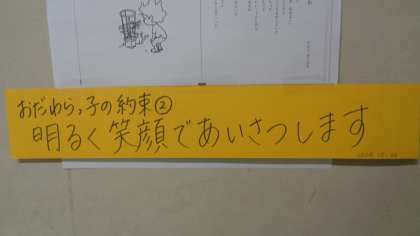 おだわらっ子の約束②
明るく笑顔であいさつします